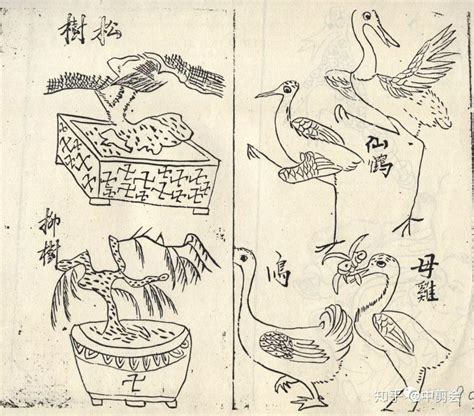 松樹
柳樹
仙鶴
母雞
知乎 @中剪会